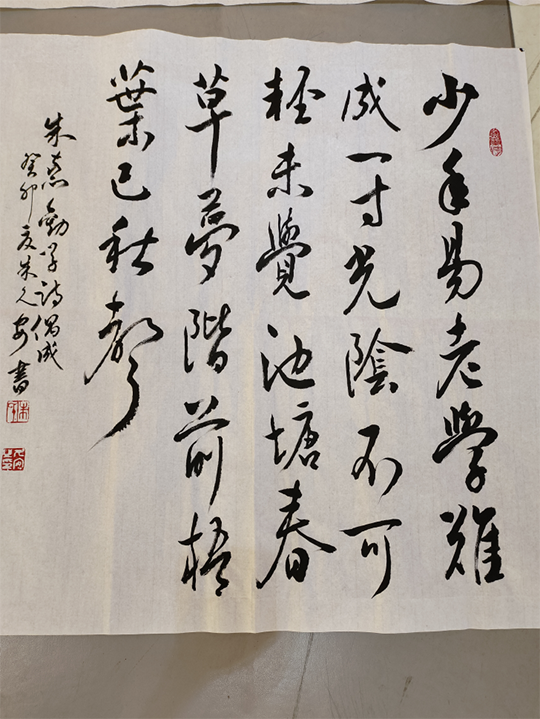 少年易老學難
成一寸光陰不可
輕未覺池塘春
草夢階前梧
葉已秋聲
朱熹勸學詩偶成
癸卯夏朱久安書